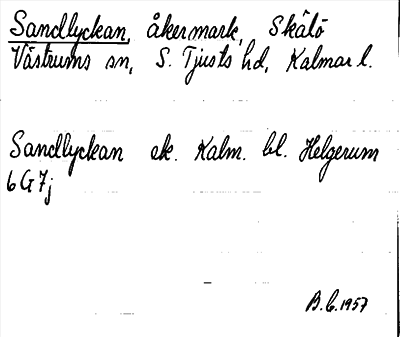 Sandlyckan, åkermark, Skälö
Västrums sn, S. Tjusts hd, Kalmar l.
Sandlyckan ek. Kalm. bl. Helgerum
6G7j
B.C. 1957